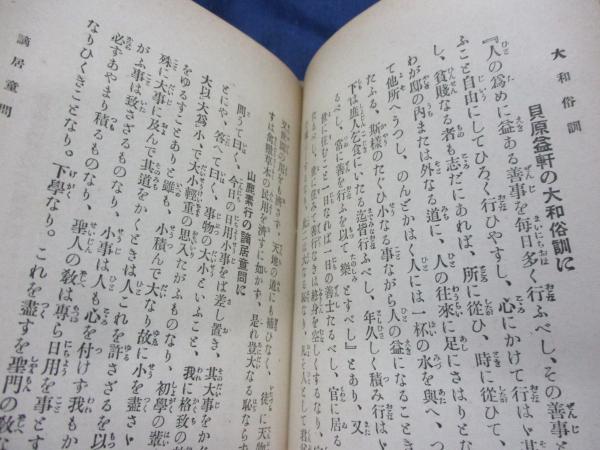 大和俗訓
貝原益軒の大和俗訓に
『人の爲めに益ある善事を毎日多く行ふべし、その善事と
ふこと自由にしてひろく行ひやすし、心にかけて行はゞ其
し、貧賤なる者も志だにあれば、所に從ひ、時に從ひて、
わが邸の内または外なる道に、人の往來に足にさはりとな
て他所へうつし、のんどかはく人には一杯の水を與へ、つ
たふる、斯樣のたぐひ小なる事ながら人の益になることき
下は庶人を食にいたる迄皆行ふべし、年久しく積み行はゞ
るべし、常に善を行ふを以て樂とすべし』とあり、又
世に住むこと一日なれば一日の善士たるべし、官に居る
を濟さず、天地の道にも補ひなく、徒に天物
すは禽獸草木の民用を濟すに如かず、是れ豈大なる恥ならず
山鹿素行の謫居童問に
問うて曰く、今日の用小事をば差し置き、其大事をか
とにや、答へて曰く、事物の大小といふこと、我に格致の
大以大爲小、で大小輕重の思入たがふものなり、初學の輩
をゆるすことありと雖も、小積んで大なり故に小を盡さ
殊に大事に及んで其道をかくときは人これを許さざるを以
がふ事は致さざるものなり、小事は人も心を付けず我もか
必すあやまり積ものなり、聖人の敎は專ら日用を事とす
なりひくきことなり。下學なり。これを盡すを聖門の敎
謫居童問